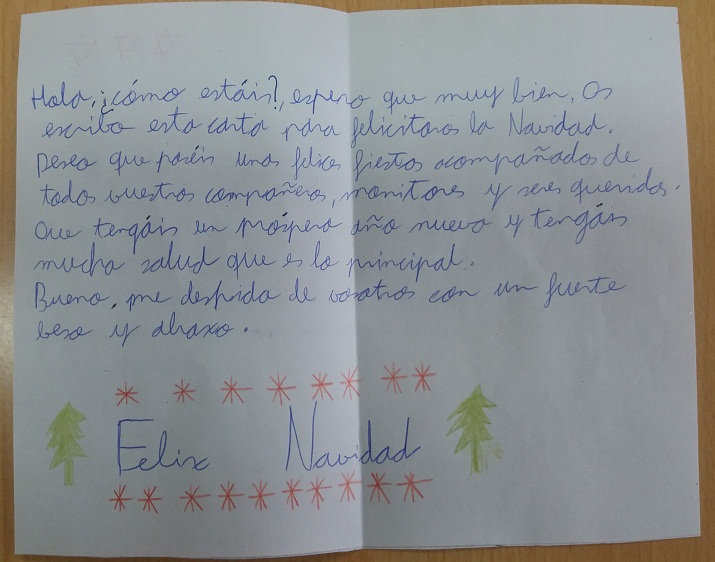 Hola, ¿cómo estáis?, espero que muy bien. Os
escribo esta carta para felicitaros la Navidad.
Deseo que paséis unas felices fiestas acompañados de
todos vuestros compañeros, monitores y seres queridos.
Que tengáis un próspero año nuevo y tengáis
mucha salud que es lo principal.
Bueno, me despido de vosotros con un fuerte
beso y abrazo.
Feliz Navidad